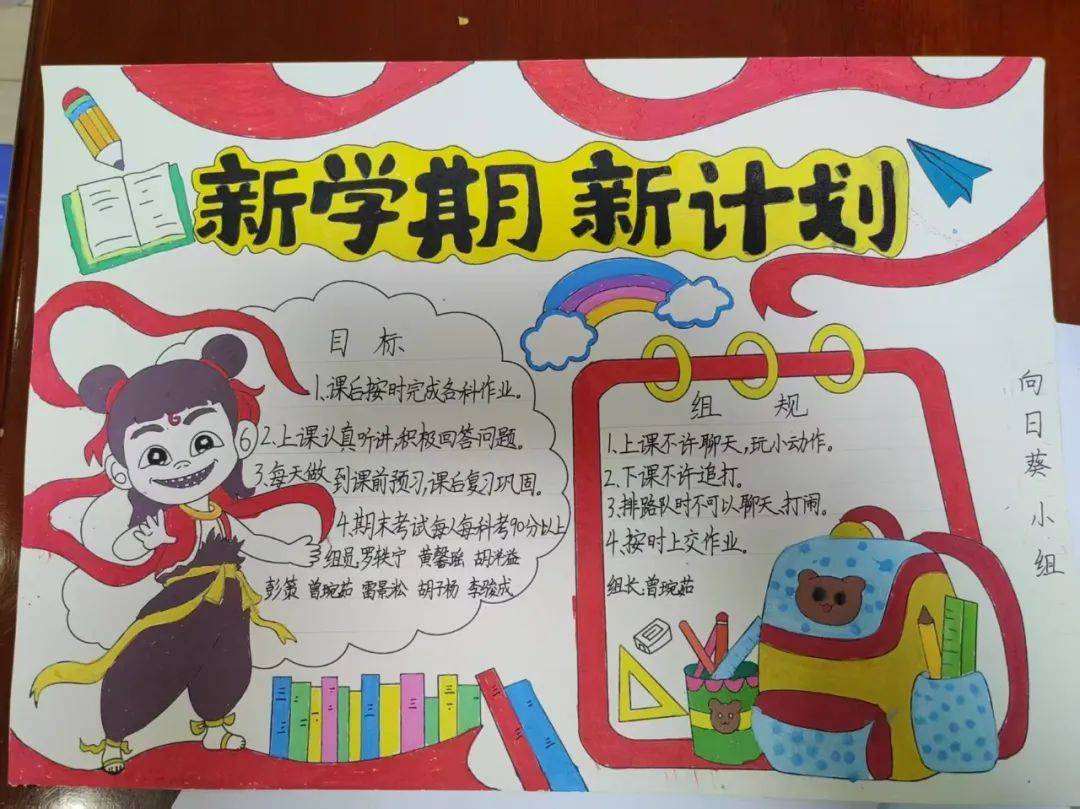 新学期 新计划
目标
1、课后按时完成各科作业。
2、上课认真听讲,积极回答问题。
3、每天做到课前预习,课后复习巩固。
4、期末考试每人每科考90分以上
组员:罗轶宁 黄馨瑶 胡洸益
彭策 曾琬茹 雷景松 胡子杨 李骏成
组规
1、上课不许聊天,玩小动作。
2、下课不许追打。
3、排路队时不可以聊天、打闹。
4、按时上交作业。
组长:曾琬茹
向日葵小组